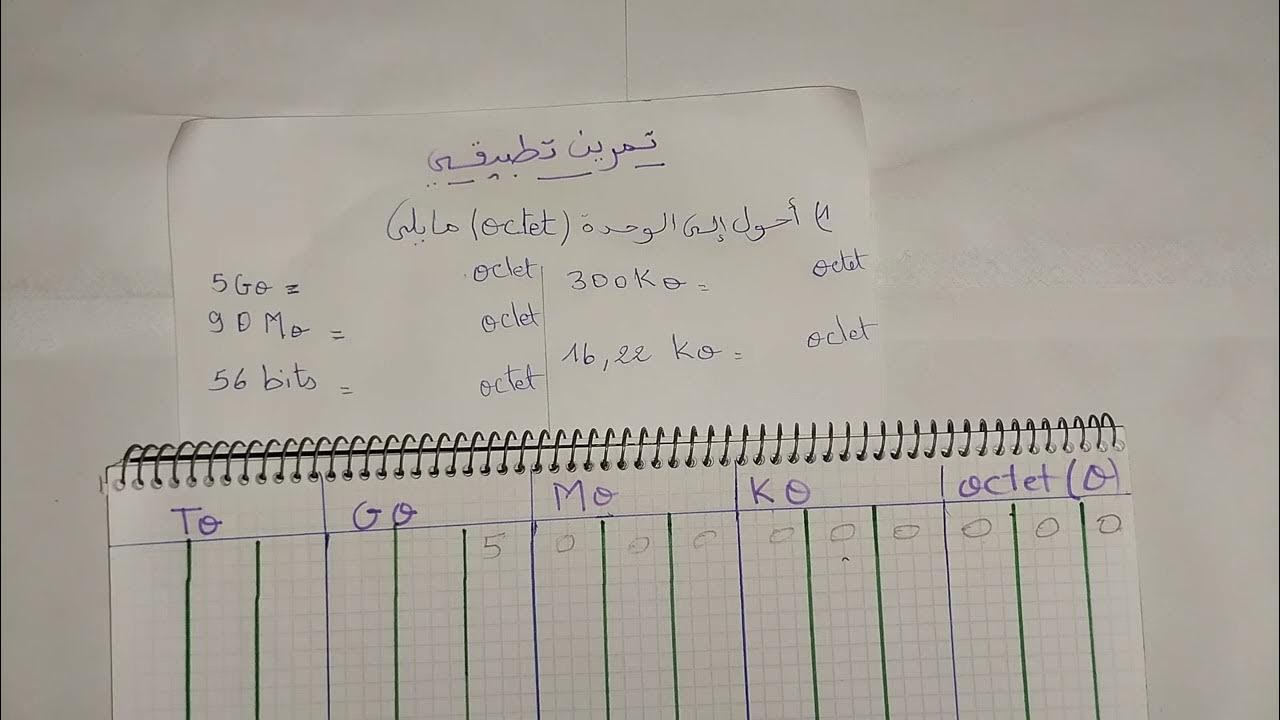 تمرين تطبيقي
1) أحول إلى الوحدة (octet) مايلي
5 Go = octet
90 Mo = octet
56 bits = octet
300 Ko = octet
16,22 Ko = octet
To Go Mo Ko octet (o)
5 0 0 0 0 0 0 0 0 0